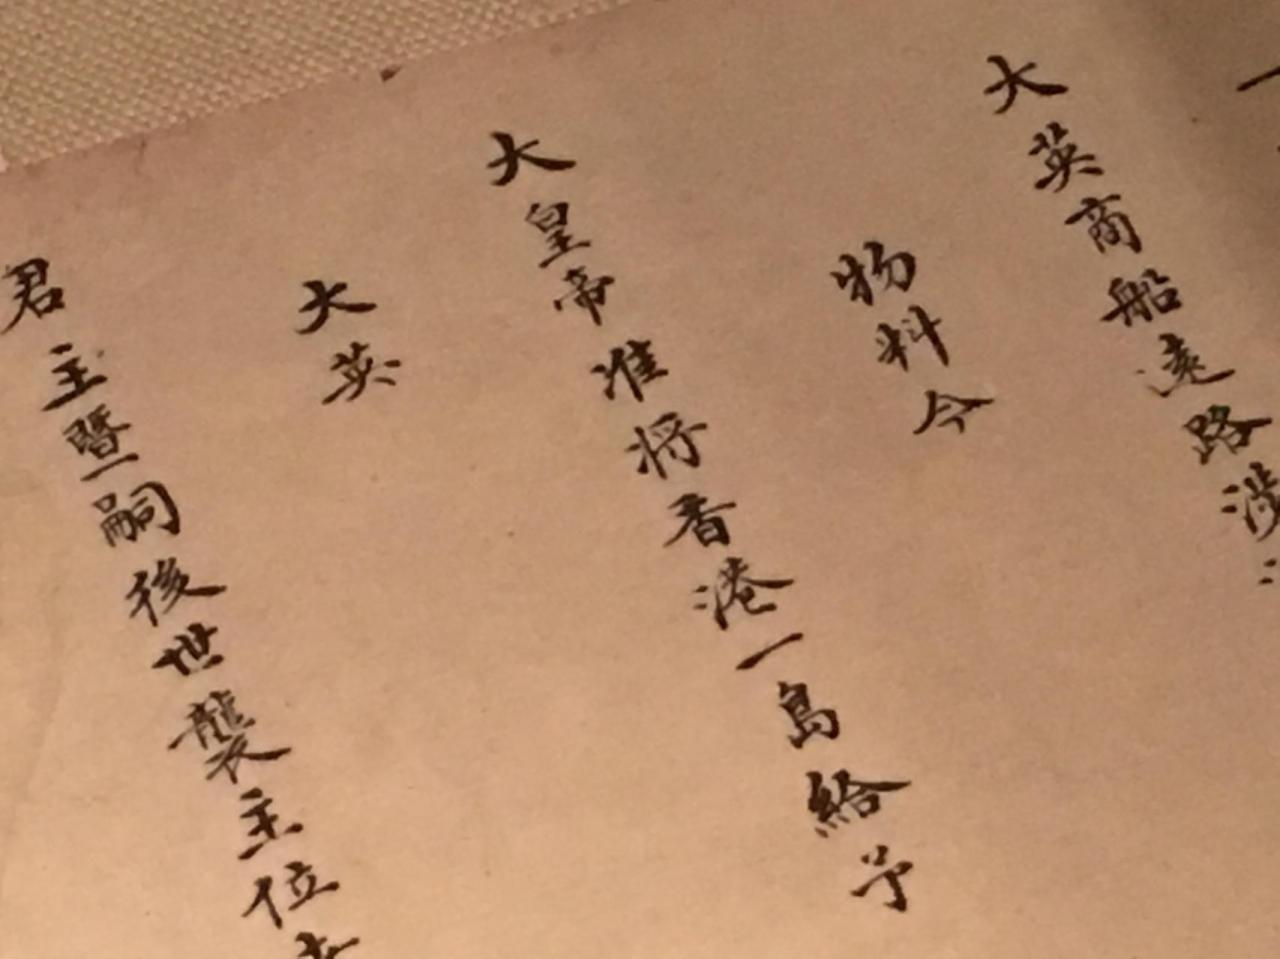 大英商船遠路涉
物料今
大皇帝准將香港一島給予
大英
君主暨嗣後世襲主位者